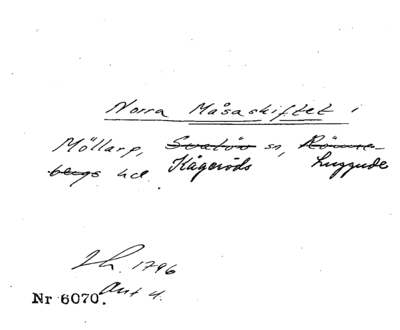 Norra Måsaskiftet i
Möllarp, Svalöv sn, Rönne-
bergs hd. Kågeröds Luggude
Lh. 1796
Akt 4.
Nr 6070.